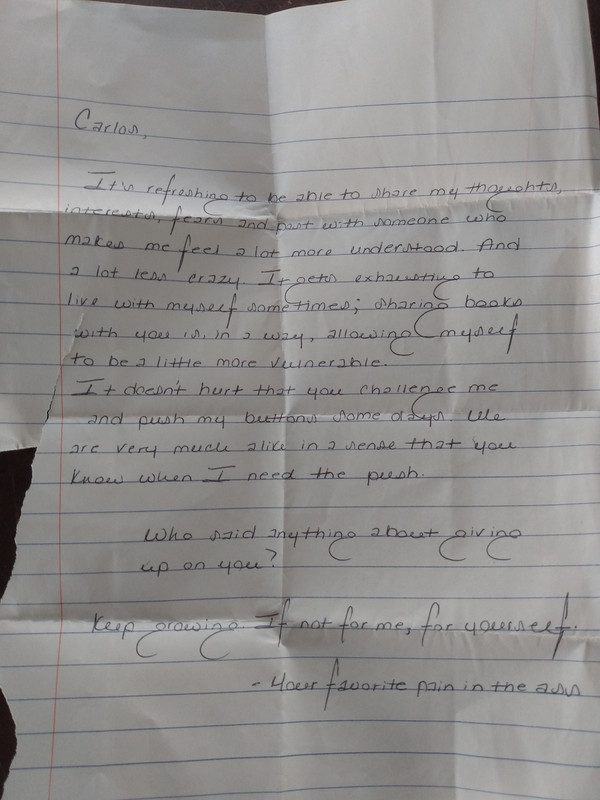 Carlos,
It's refreshing to be able to share my thoughts,
interests, fears and past with someone who
makes me feel a lot more understood. And
a lot less crazy. It gets exhausting to
live with myself sometimes; sharing books
with you is, in a way, allowing myself
to be a little more vulnerable.
It doesn't hurt that you challenge me
and push my buttons some days. We
are very much alike in a sense that you
know when I need the push.
Who said anything about giving
up on you?
Keep growing If not for me, for yourself.
- Your favorite pain in the ass